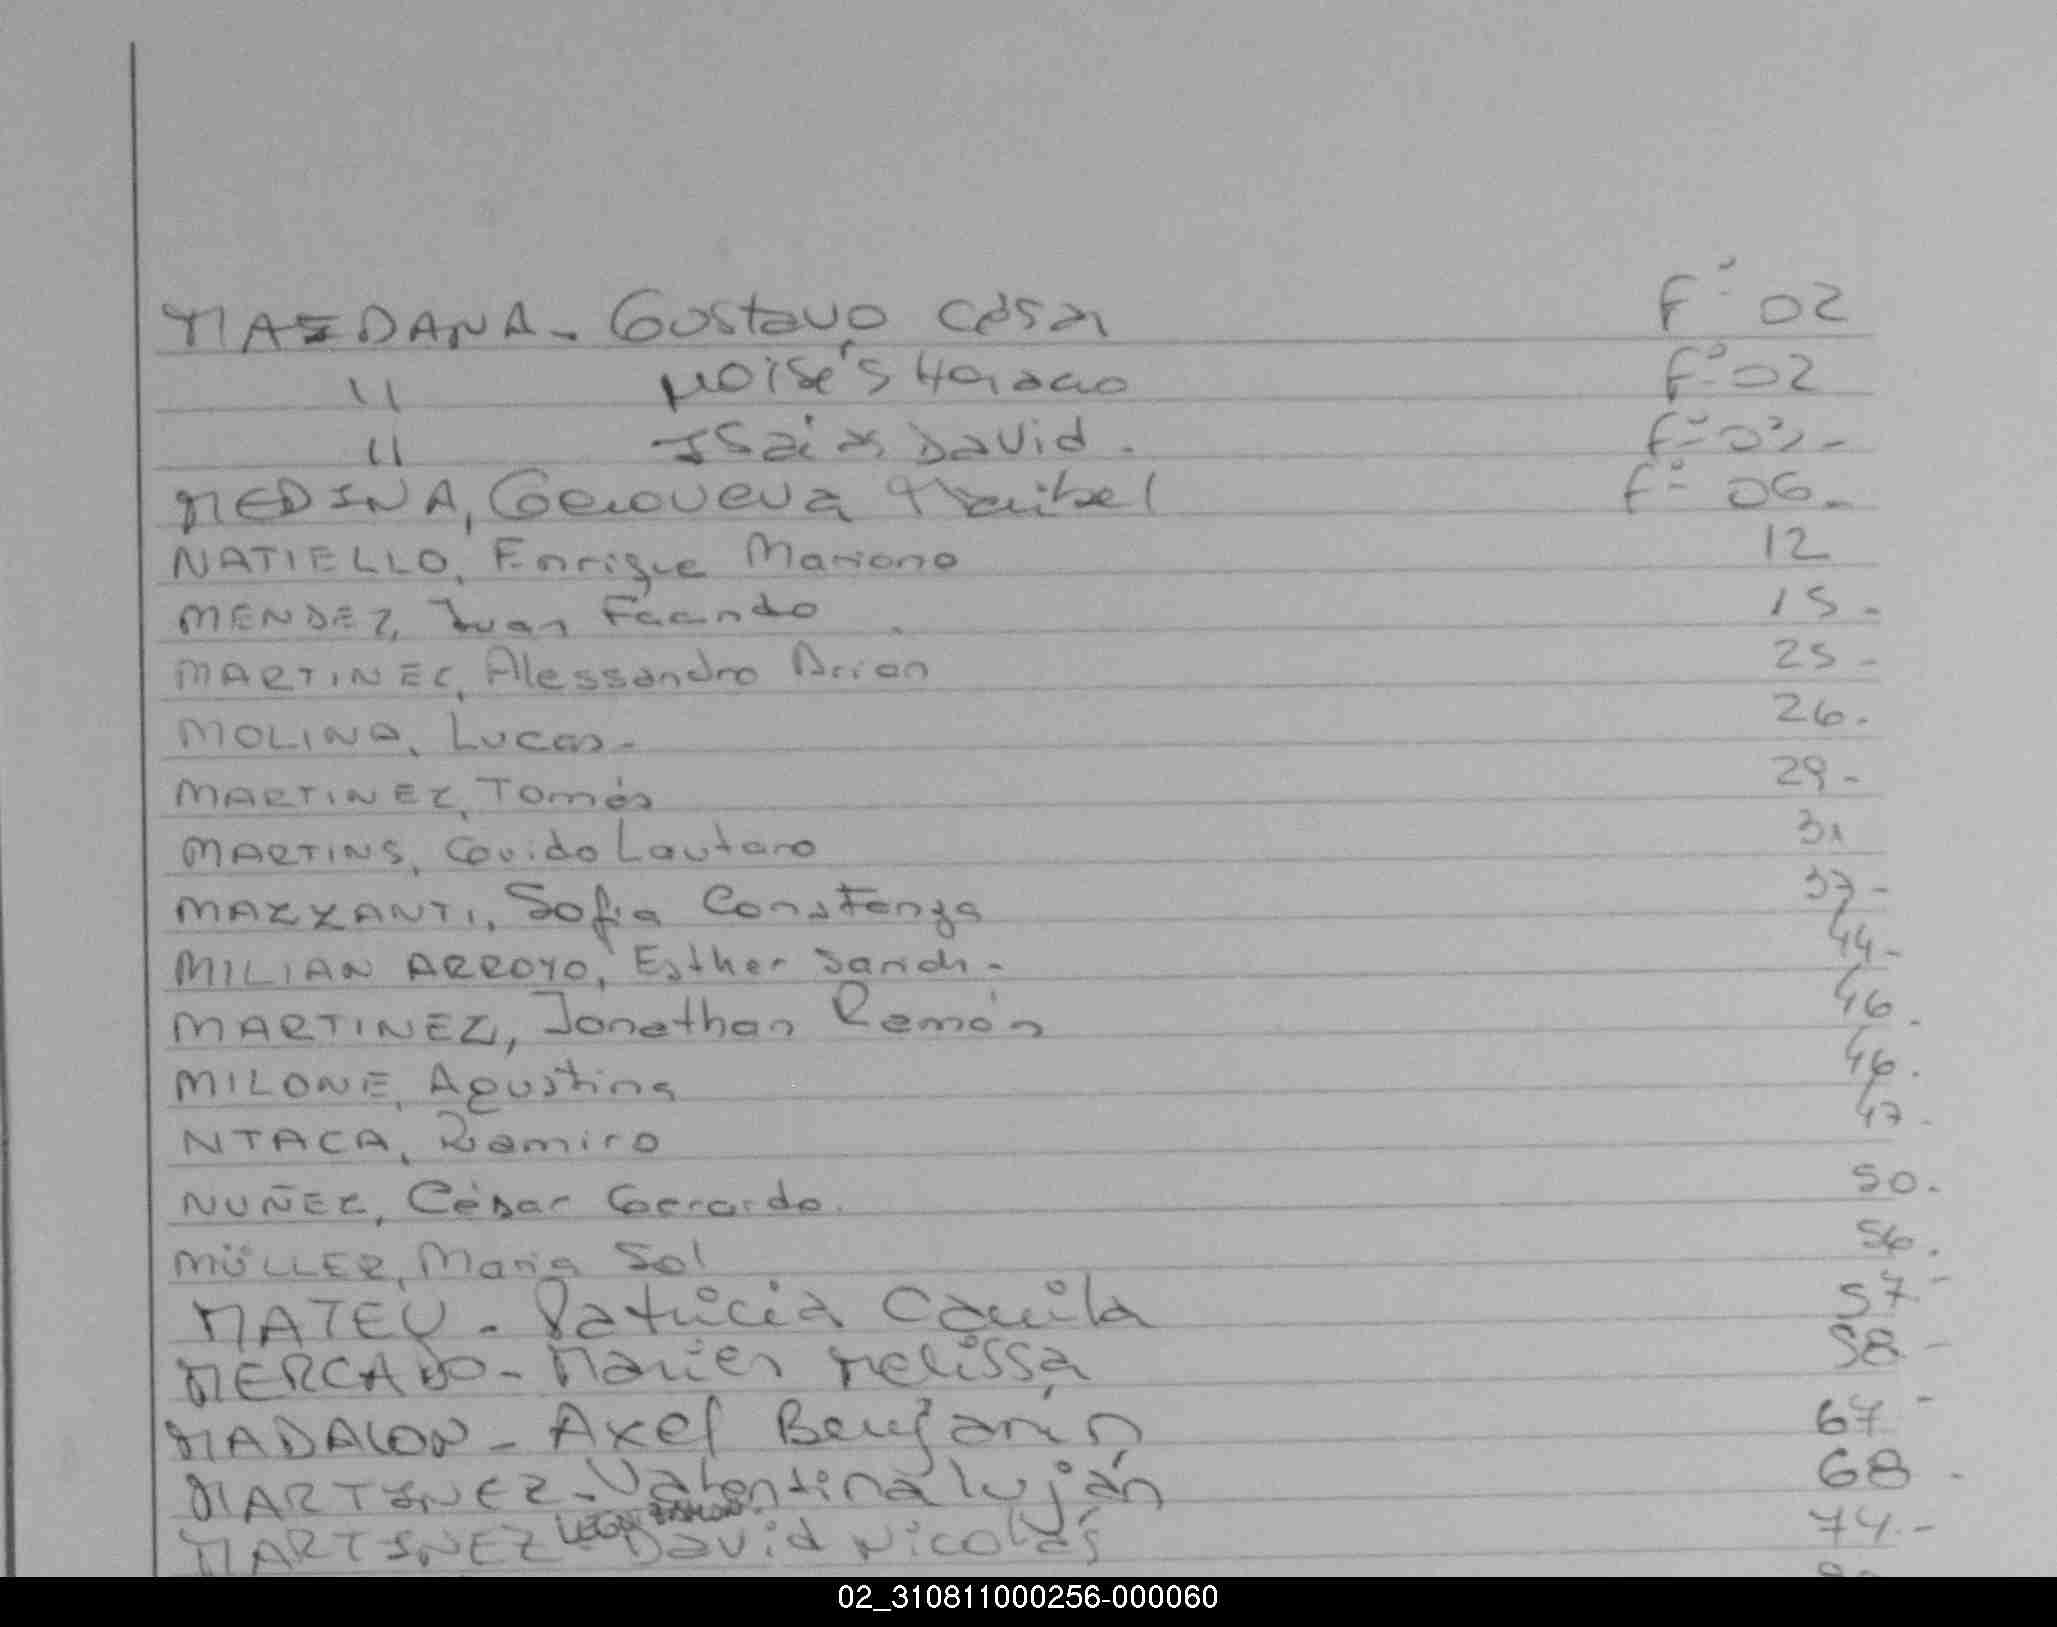 MAIDANA - Gustavo César F° 02
" Moisés Horacio F° 02
" Isaias David. F° 02 -
MEDINA, Genoveva Maribel F° 06 -
NATIELLO, Enrique Mariano 12
MENDEZ, Juan Facundo 15 -
MARTINEZ, Alessandro Brian 25 -
MOLINA, Lucas - 26.
MARTINEZ, Tomás 29 -
MARTINS, Guido Lautaro 31
MAZZANTI, Sofia Constanza 37 -
MILIAN ARROYO, Esther Sarich - 44 -
MARTINEZ, Jonathan Ramón 46.
MILONE, Agustina 46.
NTACA, Ramiro 47.
NUÑEZ, César Gerardo. 50.
MÜLLER, Maria Sol 56.
MATEU - Patricia Camila 57 -
MERCADO - Melissa 58 -
MADALON - Axel Benjamín 67 -
MARTINEZ - Valentina Luján 68 -
MARTINEZ David Nicolás 74 -
02_310811000256-000060